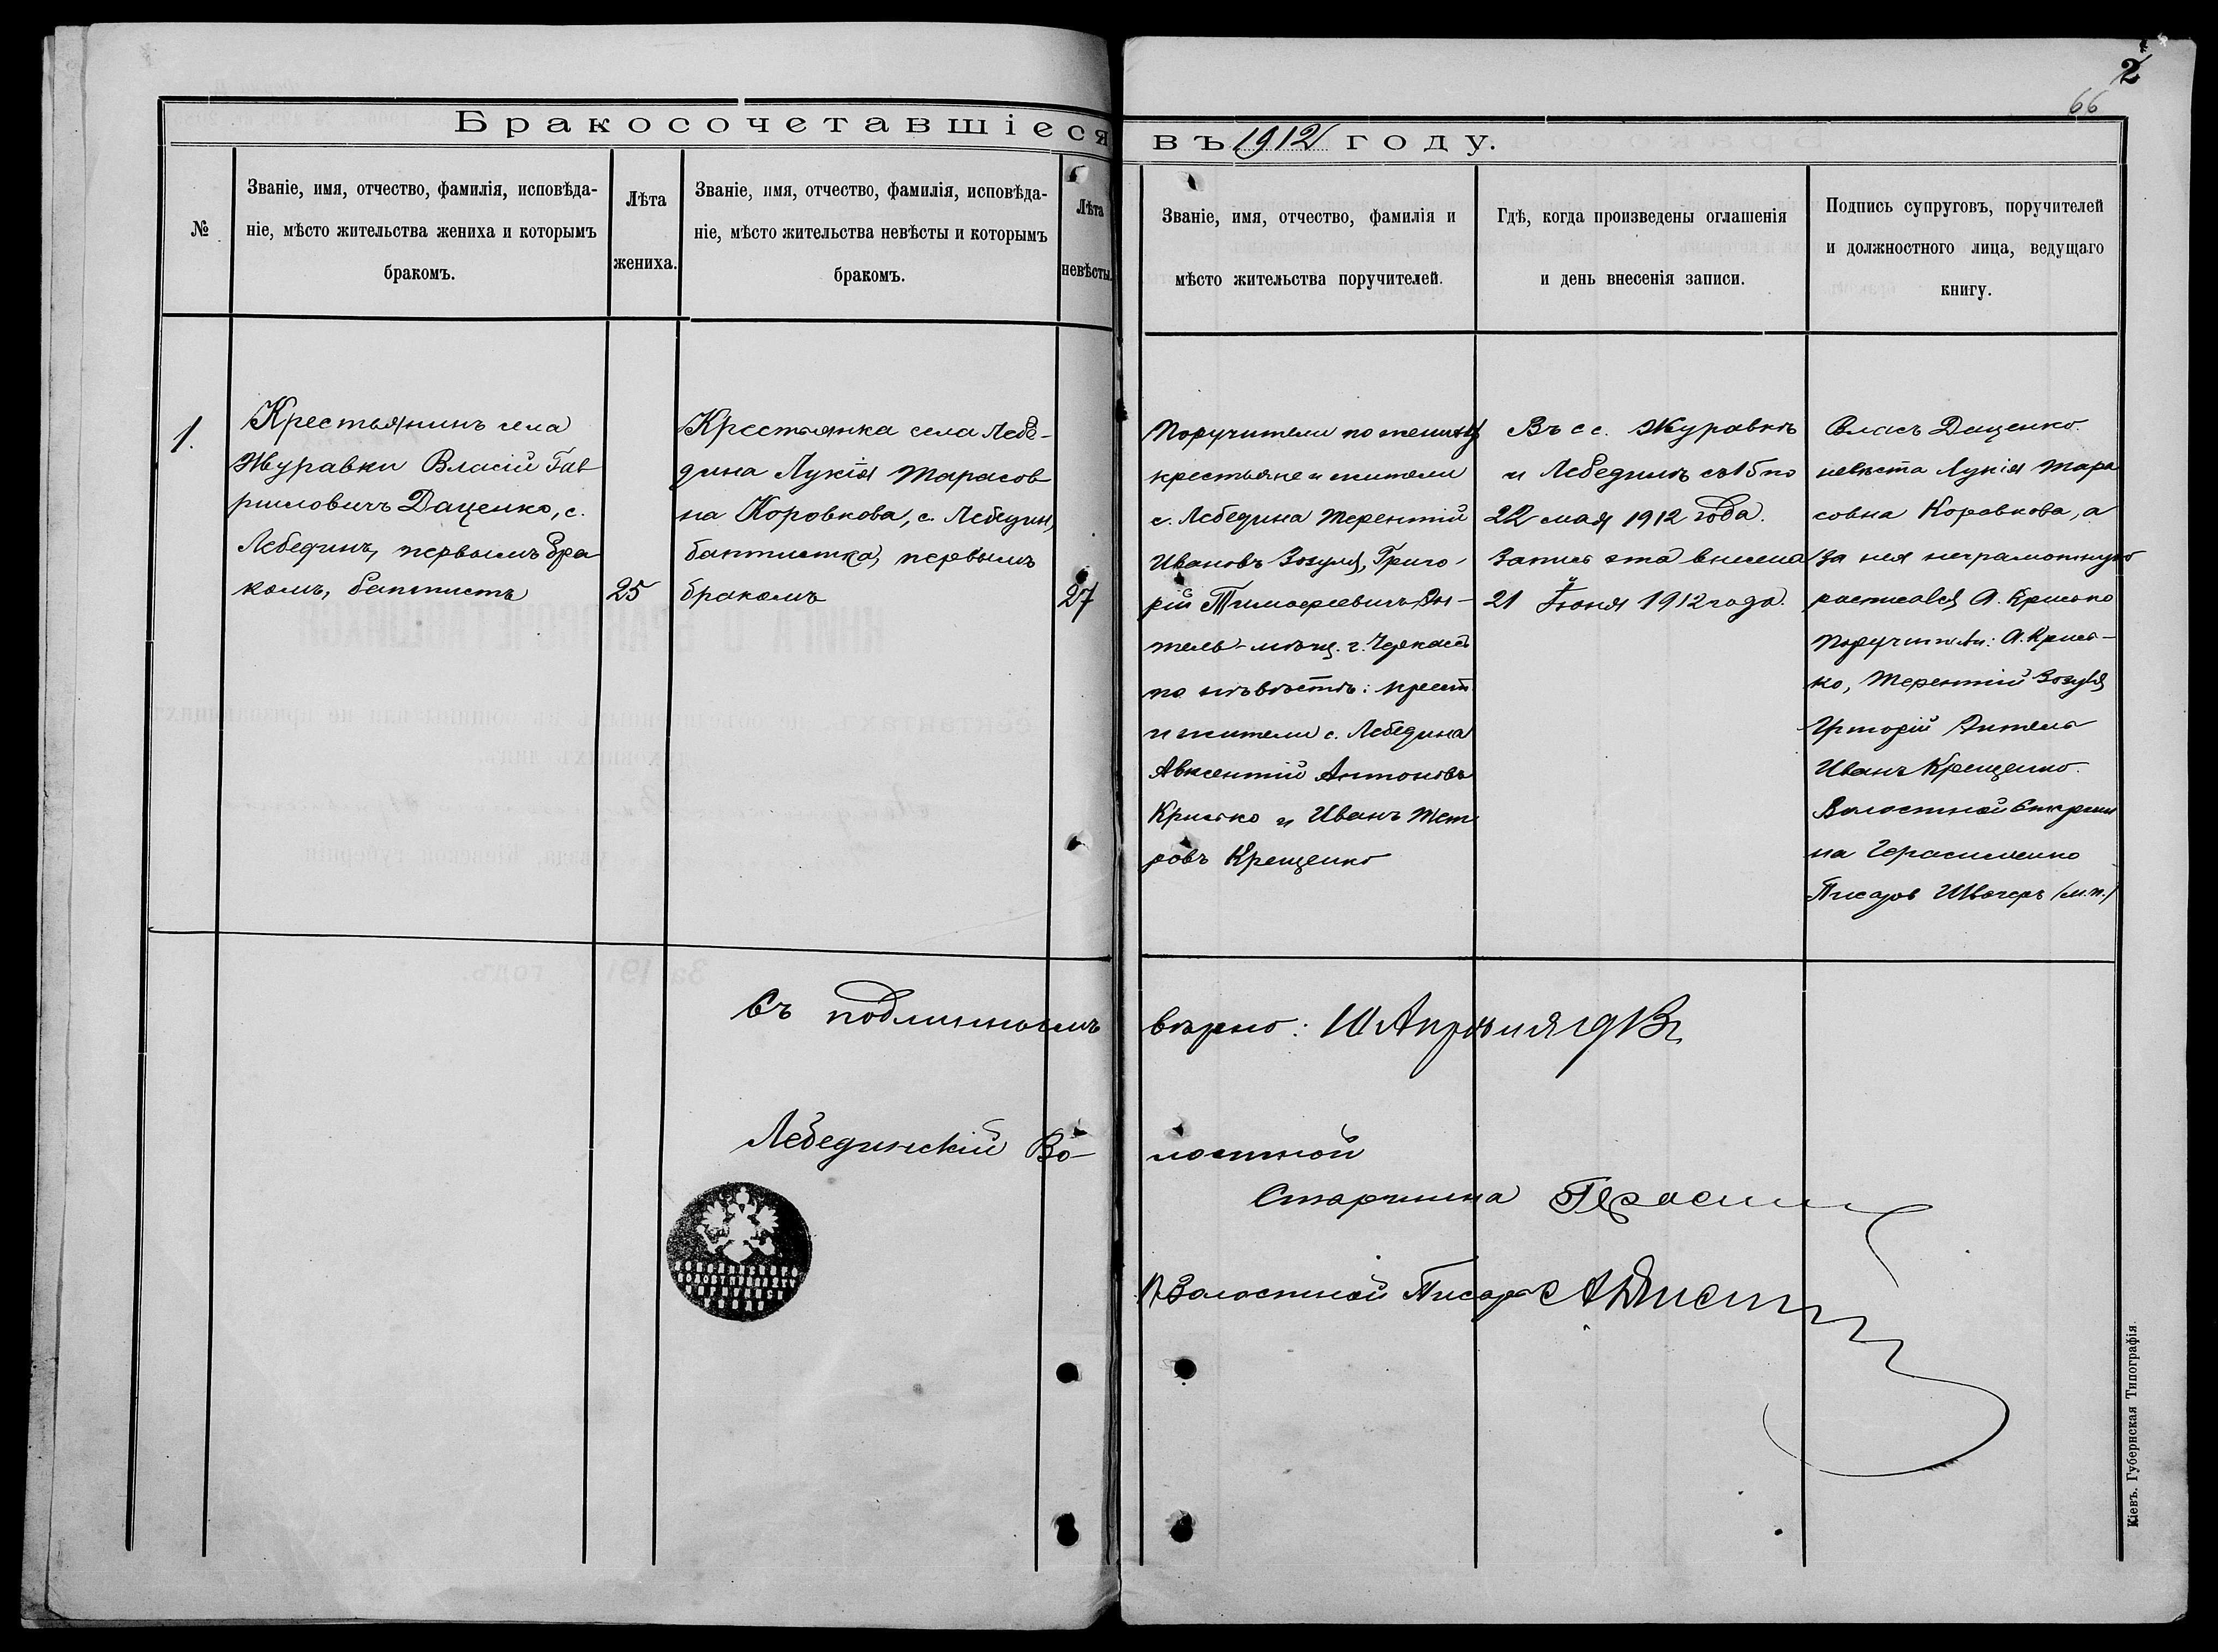 2
66
Бракосочетавшіеся
въ 1912 году.
№
Званіе, имя, отчество, фамилія, исповѣда-
ніе, мѣсто жительства жениха и которымъ
бракомъ.
Лѣта
жениха.
Званіе, имя, отчество, фамилія, исповѣда-
ніе, мѣсто жительства невѣсты и которымъ
бракомъ.
Лѣта
невѣсты.
Званіе, имя, отчество, фамилія и
мѣсто жительства поручителей.
Гдѣ, когда произведены оглашенія
и день внесенія записи.
Подпись супруговъ, поручителей
и должностного лица, ведущаго
книгу.
1.
Крестьянинъ села
Журавки Власій Гав
риловичъ Даценко, с.
Лебединъ, первымъ бра
комъ, баптистъ
25
Крестьянка села Лебе-
дина Лукія Тарасов
на Коровкова, с. Лебедин,
баптистка, первымъ
бракомъ
27
Поручители по жениху
крестьяне и жители
с. Лебедина Терентій
Ивановъ Зозуля, Григо-
рій Тимофеевичъ Эн-
тель - мѣщ. г. Черкассъ
по невѣстѣ: крест
и жители с. Лебедина
Авксентій Антоновъ
Крисько и Иванъ Пет
ровъ Крещенко
Въ с с. Журавкѣ
и Лебединѣ съ 15 по
22 мая 1912 года.
Запись эта внесена
21 Іюня 1912 года.
Власъ Даценко.
невѣста Лукія Тара
совна Коровкова, а
за нея неграмотную
расписался А. Крисько
Поручители: А. Крись-
ко, Терентій Зозуля
Григорій Энтель
Иванъ Крещенко.
Волостной Старши
на Герасименко
Писарь Швачеръ /м.п./
Съ подлиннымъ вѣрно: 10 Апрѣля 1913 г.
Лебединскій Во-
лостной
Старшина Герасим
Волостной Писарь
Кіевъ. Губернская Типографія.